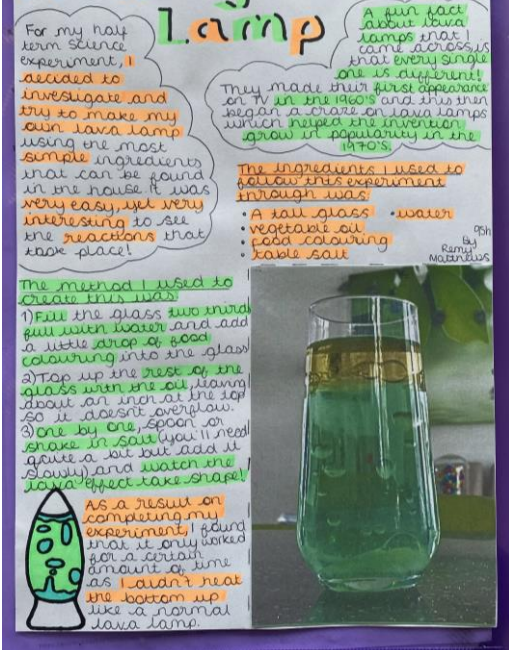 Lamp
For my half
term science
experiment, I
decided to
investigate and
try to make my
own lava lamp
using the most
simple ingredients
that can be found
in the house. It was
very easy, yet very
interesting to see
the reactions that
took place!
A fun fact
about lava
lamps that I
came across, is
that every single
one is different!
They made their first appearance
on TV in the 1960's and this then
began a craze on lava lamps
which helped the invention
grow in popularity in the
1970's.
The ingredients I used to
follow this experiment
through was:
• A tall glass • water
• vegetable oil
• food colouring
• table salt
9sh
By
Remy
Matthews
The method I used to
create this was:
1) Fill the glass two thirds
full with water and add
a little drop of food
colouring into the glass
2) Top up the rest of the
glass with the oil, leaving
about an inch at the top
so it doesn't overflow.
3) one by one, spoon or
shake in salt (you'll need
quite a bit but add it
slowly) and watch the
lava effect take shape!
As a result on
completing my
experiment, I found
that it only worked
for a certain
amount of time
as I didn't heat
the bottom up
like a normal
lava lamp.